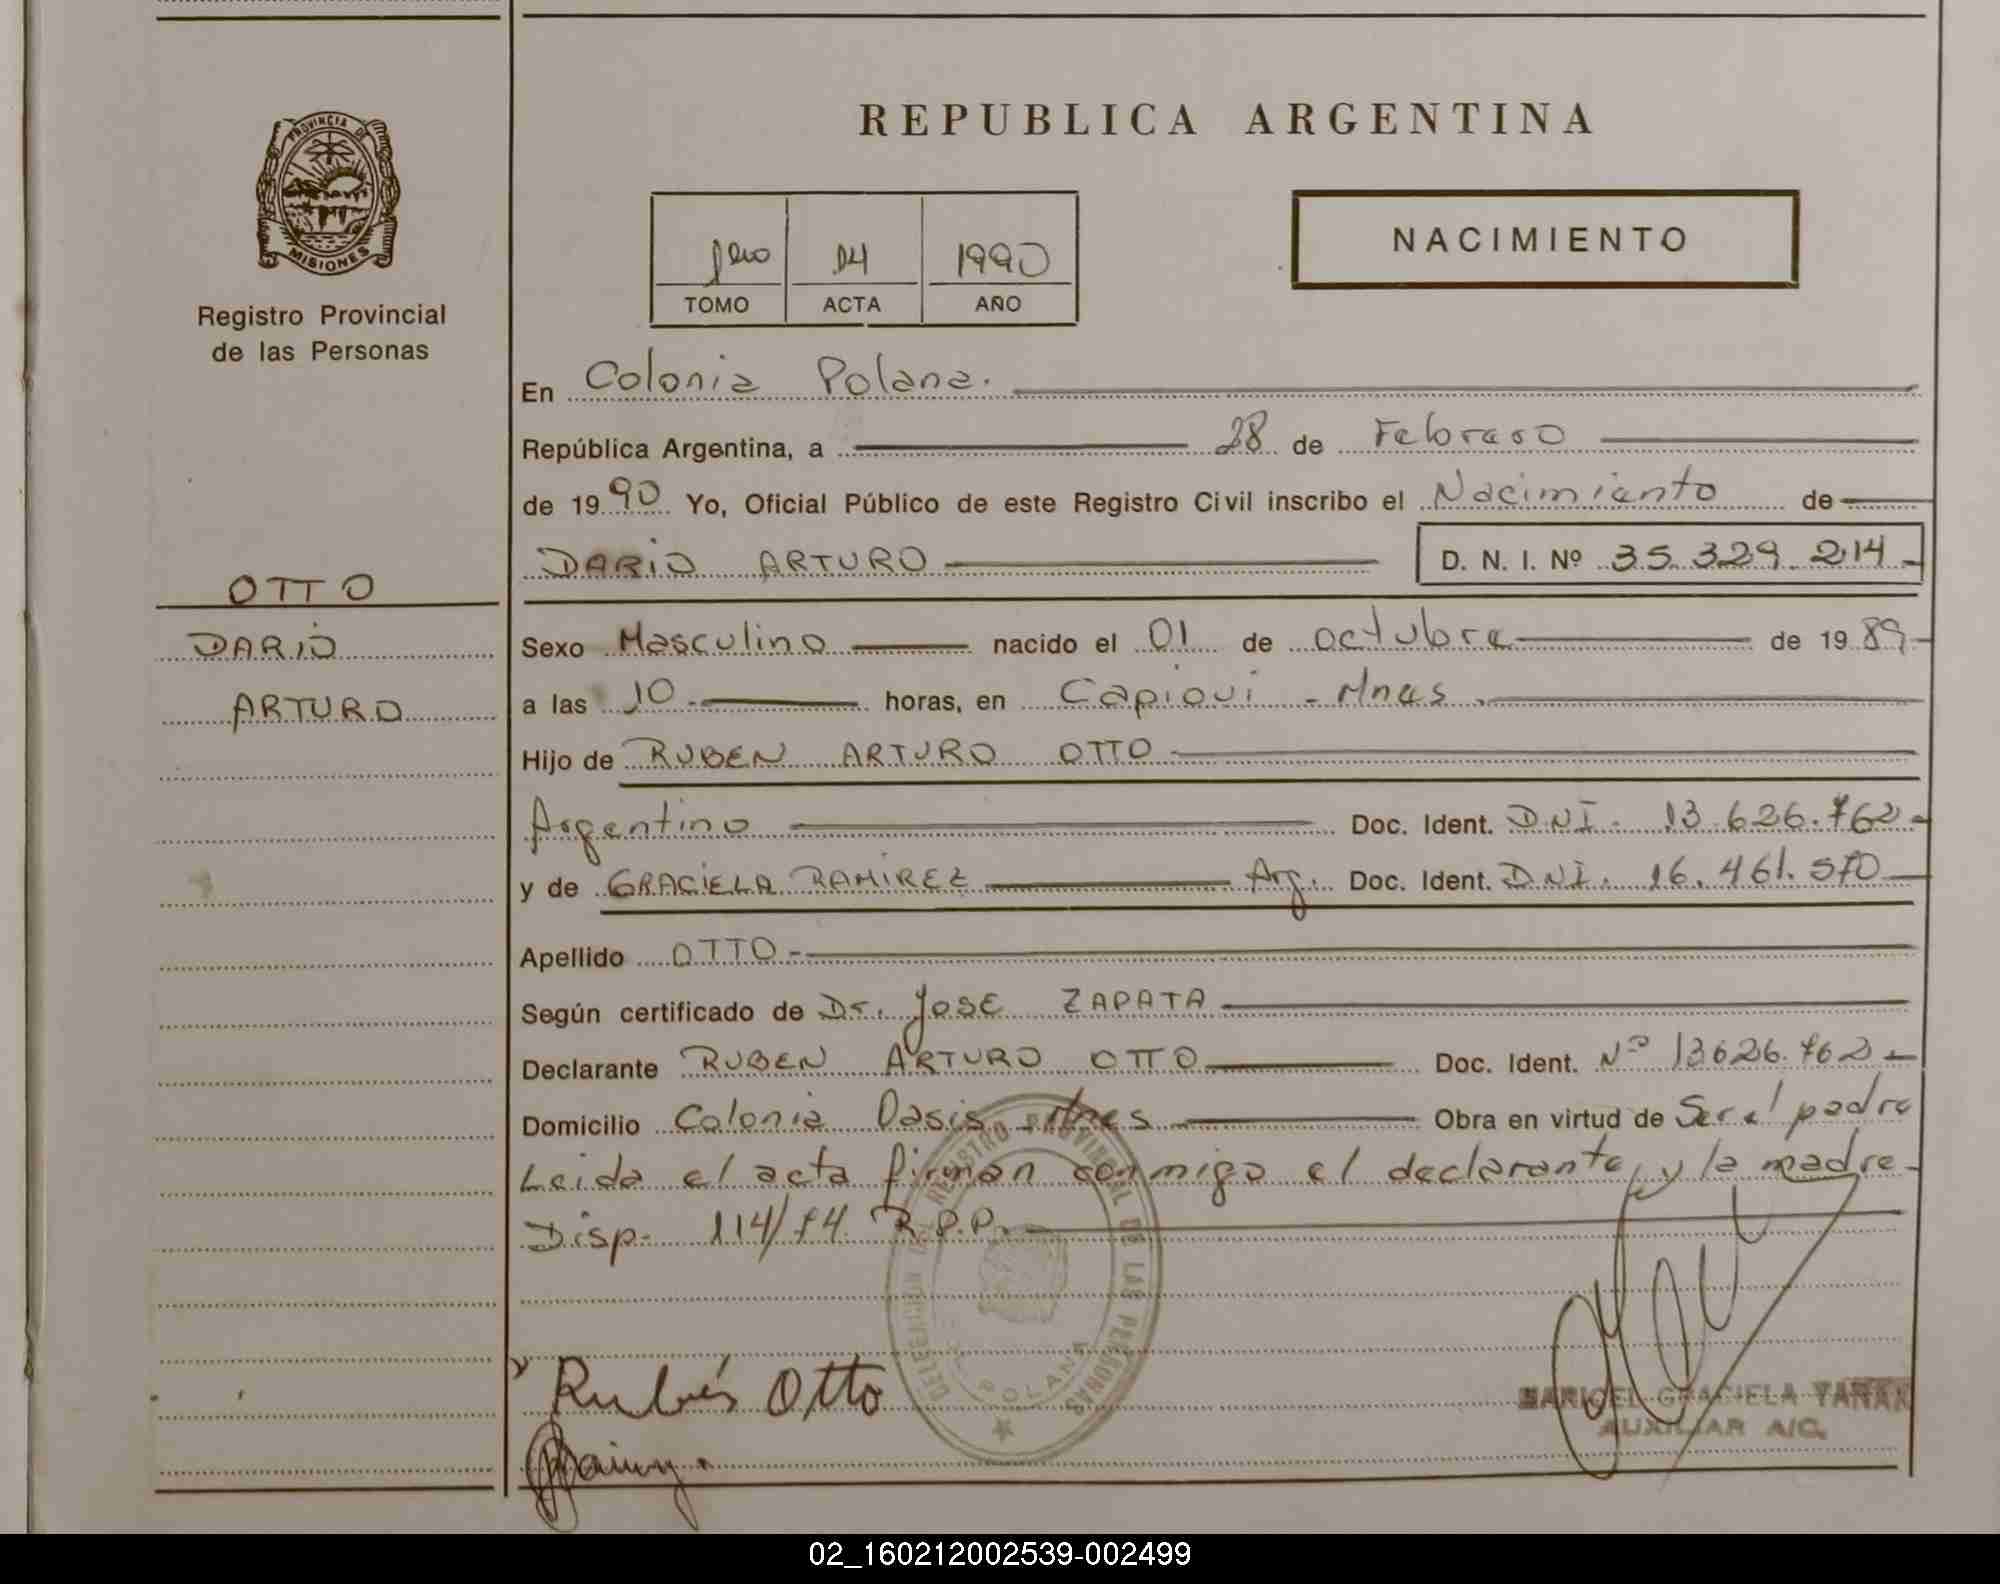 PROVINCIA DE
MISIONES
Registro Provincial
de las Personas
OTTO
DARIO
ARTURO
REPUBLICA ARGENTINA
1ero 14 1990
TOMO ACTA AÑO
NACIMIENTO
En Colonia Polana.
República Argentina, a 28 de Febrero
de 1990 Yo, Oficial Público de este Registro Civil inscribo el Nacimiento de
DARIO ARTURO D. N. I. Nº 35.329.214
Sexo Masculino nacido el 01 de octubre de 1989
a las 10 horas, en Capioui - Mnes.
Hijo de RUBEN ARTURO OTTO
Argentino Doc. Ident. D.N.I. 13.626.762
y de GRACIELA RAMIREZ Arg. Doc. Ident. D.N.I. 16.461.570
Apellido OTTO
Según certificado de Dr. JOSE ZAPATA
Declarante RUBEN ARTURO OTTO Doc. Ident. Nº 13626.762
Domicilio Colonia Oasis Mnes Obra en virtud de Ser el padre
Leida el acta firman conmigo el declarante y la madre
Disp. 114/74 R.P.P.
DELEGACION DEL REGISTRO PROVINCIAL DE LAS PERSONAS
POLANA
Rubén Otto
MARICEL GRACIELA
AUXILIAR A/C.
02_160212002539-002499